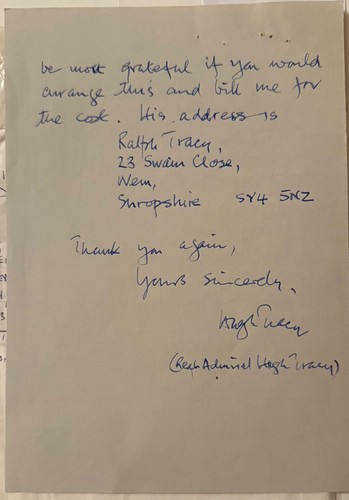 be most grateful if you would
arrange this and bill me for
the cost. His address is
Ralph Tracy,
23 Swain Close,
Wem,
Shropshire SY4 5NZ
Thank you again,
Yours sincerely,
Hugh Tracy
(Rear Admiral Hugh Tracy)